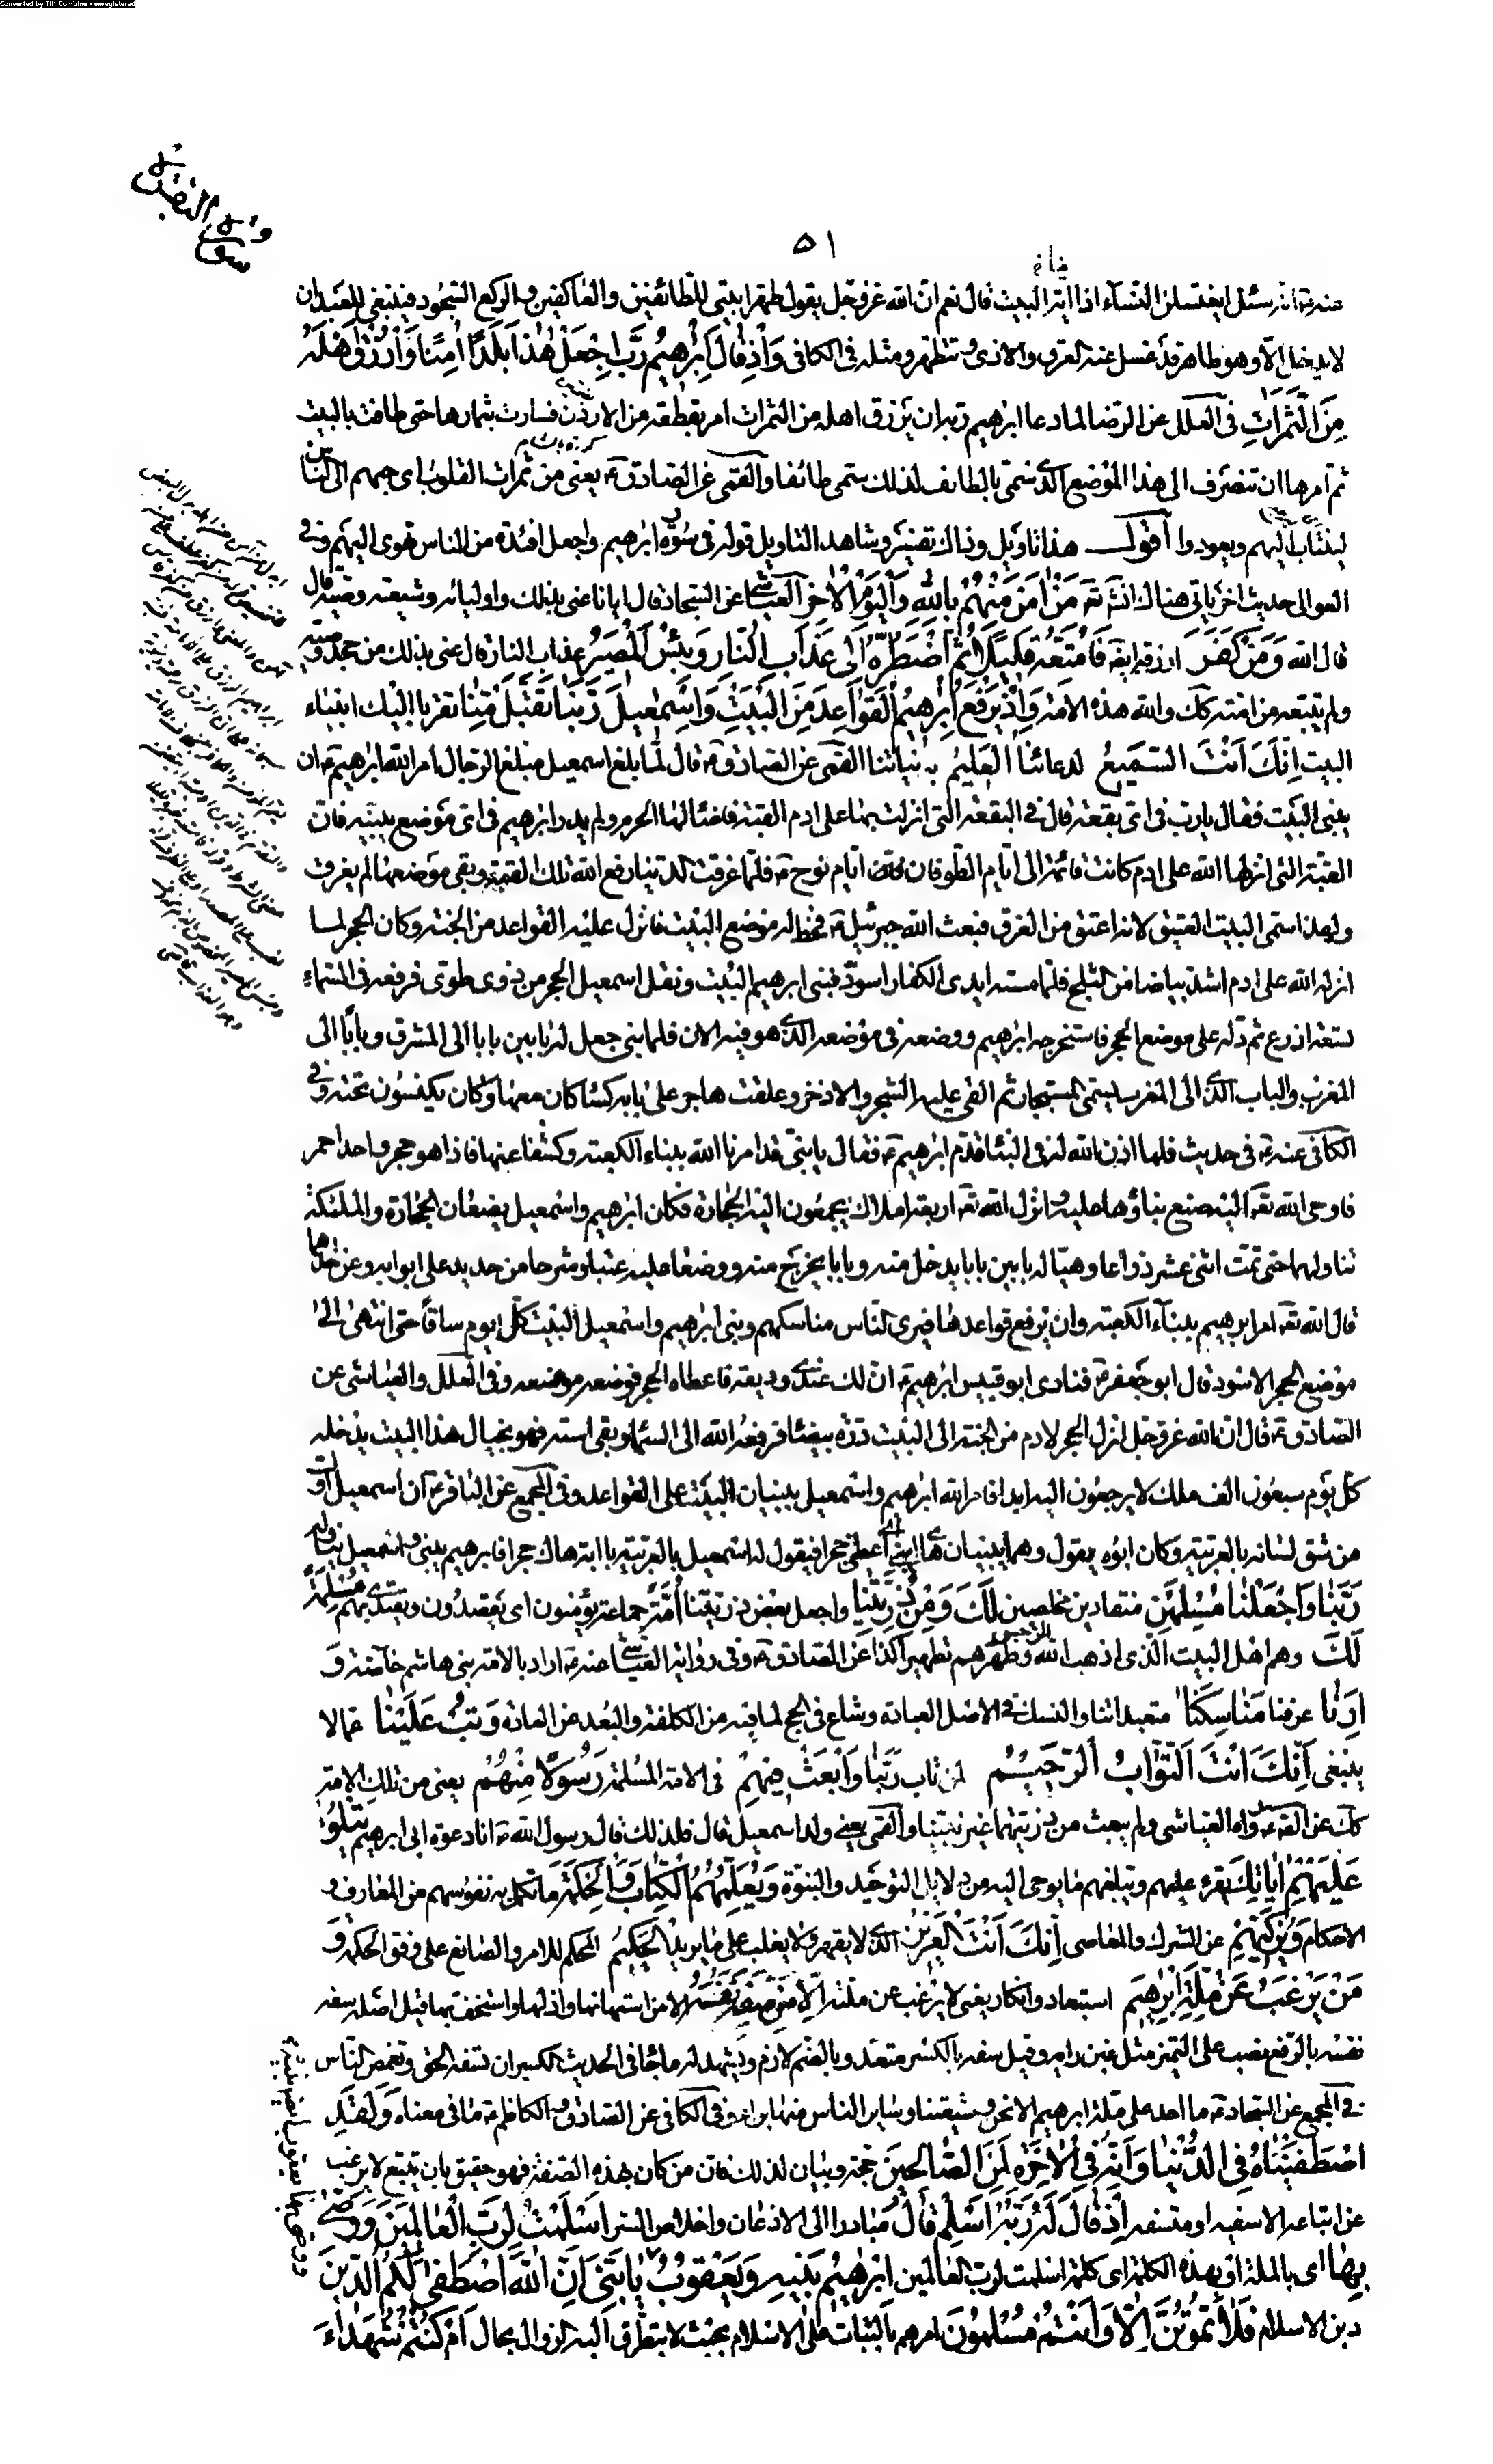 Converted by Tiff Combine - unregistered
٥١
عنه ع انه سئل ايغتسلن النسآء اذا اتين البيت قال نعم ان الله عز وجل يقول طهرا بيتي للطائفين والعاكفين والركع السجود فينبغي للعبد ان
لا يدخل الا وهو طاهر قد غسل عنه العرق والاذى وتطهر ومثله في الكافي وَاِذْ قٰالَ اِبْرٰهيمُ رَبِّ اجْعَلْ هٰذٰا بَلَدًا اٰمِنًا وَارْزُقْ اَهْلَهُ
مِنَ الثَّمَرٰاتِ في العلل عن الرضا لما دعا ابرهيم ربه ان يرزق اهله من الثمرات امر بقطعة من الاردن فسارت بثمارها حتى طافت بالبيت
ثم امرها ان تنصرف الى هذا الموضع الذي سمي بالطايف لذلك سمي طائفا والقمي عن الصادق ع يعني من ثمرات القلوب اي حببهم الى الناس
لينتاب اليهم ويعودوا اقول هذا تاويل وذاك تفسير وشاهد التاويل قوله في سورة ابرهيم واجعل افئدة من الناس تهوى اليهم وفي
العوالي حديث اخر ياتي هناك انشآء تعالى مَنْ اٰمَنَ مِنْهُمْ بِاللهِ وَالْيَوْمِ الْاٰخِرِ العياشي عن السجاد قال ايانا عنى بذلك واوليائه وشيعة وصيه قال
قال الله وَمَنْ كَفَرَ ارزقه ايضا فَاُمَتِّعُهُ قَليلًا ثُمَّ اَضْطَرُّهُ اِلٰى عَذٰابِ النّٰارِ وَبِئْسَ الْمَصيرُ عذاب النار قال عنى بذلك من جحد وصيه
ولم يتبعه من امته كك والله هذه الامة وَاِذْ يَرْفَعُ اِبْرٰهيمُ الْقَوٰاعِدَ مِنَ الْبَيْتِ وَاِسْمٰعيلُ رَبَّنٰا تَقَبَّلْ مِنّٰا تقربا اليك ببناء
البيت اِنَّكَ اَنْتَ السَّميعُ لدعائنا الْعَليمُ بنياتنا القمي عن الصادق ع قال لما بلغ اسمعيل مبلغ الرجال امر الله ابرهيم ع ان
يبني البيت فقال يا رب في اي بقعة قال في البقعة التي انزلت بها على ادم القبة فاضآء لها الحرم ولم يدر ابرهيم في اي موضع يبنيه فان
القبة التي انزلها الله على ادم كانت قائمة الى ايام الطوفان ايام نوح ع فلما غرقت الدنيا رفع الله تلك القبة وبقي موضعها لم يغرق
ولهذا سمي البيت العتيق لانه اعتق من الغرق فبعث الله جبرئيل ع فخط له موضع البيت فانزل عليه القواعد من الجنة وكان الحجر لما
انزله الله على ادم اشد بياضا من الثلج فلما مسته ايدي الكفار اسود فبنى ابرهيم البيت ونقل اسمعيل الحجر من ذي طوى فرفعه في السماء
تسعة اذرع ثم دله على موضع الحجر فاستخرجه ابرهيم ووضعه في موضعه الذي هو فيه الان فلما بنى جعل له بابين بابا الى المشرق وبابا الى
المغرب والباب الذي الى المغرب يسمى المستجار ثم القى عليه الشجر والاذخر وعلقت هاجر على بابه كساء كان معها وكان يكنسون تحته وفي
الكافي عنه ع في حديث فلما اذن الله له في البناء قدم ابرهيم ع فقال يا بني قد امرنا الله ببناء الكعبة وكشفا عنها فاذا هو حجر واحد احمر
فاوحى الله تعالى اليه ضع بناءها عليه وانزل الله تعالى اربعة املاك يجمعون اليه الحجارة فكان ابرهيم واسمعيل يضعان الحجارة والملئكة
تناولهما حتى تمت اثنى عشر ذراعا وهيأ له بابين بابا يدخل منه وبابا يخرج منه ووضعا عليه عتبا وشرجا من حديد على ابوابه وعن احدهما
قال الله تعالى امر ابرهيم ببناء الكعبة وان يرفع قواعدها ويري الناس مناسكهم وبنى ابرهيم واسمعيل البيت كل يوم ساقا حتى انتهى الى
موضع الحجر الاسود قال ابو جعفر ع فنادى ابو قبيس ابرهيم ع ان لك عندي وديعة فاعطاه الحجر فوضعه موضعه وفي العلل والعياشي عن
الصادق ع قال ان الله عز وجل انزل الحجر لادم من الجنة الى البيت درة بيضاء فرفعه الله الى السماء وبقي اسه فهو بحيال هذا البيت يدخله
كل يوم سبعون الف ملك لا يرجعون اليه ابدا فامر الله ابرهيم واسمعيل ببنيان البيت على القواعد وفي المجمع عن الباقر ع ان اسمعيل اول
من شق لسانه بالعربية وكان ابوه يقول وهما يبنيان هاي ابني اعطني حجرا فيقول له اسمعيل بالعربية يا ابة هاك حجرا فابرهيم يبني واسمعيل يناوله
رَبَّنٰا وَاجْعَلْنٰا مُسْلِمَيْنِ منقادين مخلصين لَكَ وَمِنْ ذُرِّيَّتِنٰا واجعل بعض ذريتنا اُمَّةً جماعة يؤمنون اي يقصدون ويقتدى بهم مُسْلِمَةً
لَكَ وهم اهل البيت الذي اذهب الله عنهم الرجس وطهرهم تطهيرا كذا عن الصادق ع وفي رواية العياشي عنه ع اراد بالامة بني هاشم خاصة وَ
اَرِنٰا عرفنا مَنٰاسِكَنٰا متعبداتنا والنسك في الاصل العبادة وشاع في الحج لما فيه من الكلفة والبعد عن العادة وَتُبْ عَلَيْنٰا عما لا
ينبغي اِنَّكَ اَنْتَ التَّوّٰابُ الرَّحيمُ لمن تاب رَبَّنٰا وَابْعَثْ فيهِمْ في الامة المسلمة رَسُولًا مِنْهُمْ يعني من تلك الامة
كك عن الصادق ع رواه العياشي ولم يبعث من ذريتهما غير نبينا والقمي يعني ولد اسمعيل قال فلذلك قال رسول الله ص انا دعوة ابي ابرهيم يَتْلُوا
عَلَيْهِمْ اٰيٰاتِكَ يقرء عليهم ويبلغهم ما يوحى اليه من دلايل التوحيد والنبوة وَيُعَلِّمُهُمُ الْكِتٰابَ وَالْحِكْمَةَ ما تكمل به نفوسهم من المعارف و
الاحكام وَيُزَكّيهِمْ عن الشرك والمعاصي اِنَّكَ اَنْتَ الْعَزيزُ الذي لا يقهر ولا يغلب على ما يريد الْحَكيمُ المحكم للامر والصانع على وفق الحكمة وَ
مَنْ يَرْغَبُ عَنْ مِلَّةِ اِبْرٰهيمَ استبعاد وانكار يعني لا يرغب عن ملته اِلّٰا مَنْ سَفِهَ نَفْسَهُ الا من استمهانها واذلها واستخف بها قيل اصله سفه
نفسه بالرفع نصب على التميز مثل غبن رايه وقيل سفه بالكسر متعد وبالضم لازم ويشهد له ما جاء في الحديث الكبر ان تسفه الحق وتغمص الناس
في المجمع عن السجاد ع ما احد على ملة ابرهيم الا نحن وشيعتنا وساير الناس منها برآء وفي الكافي عن الصادق والكاظم ع ما في معناه وَلَقَدِ
اصْطَفَيْنٰاهُ فِي الدُّنْيٰا وَاِنَّهُ فِي الْاٰخِرَةِ لَمِنَ الصّٰالِحينَ حجة وبيان لذلك فان من كان بهذه الصفة فهو حقيق بان يتبع لا يرغب
عن اتباعه الا سفيه او متسفه اِذْ قٰالَ لَهُ رَبُّهُ اَسْلِمْ قٰالَ مبادرا الى الاذعان واخلاص السر اَسْلَمْتُ لِرَبِّ الْعٰالَمينَ وَوَصّٰى
بِهٰا اي بالملة او بهذه الكلمة اي كلمة اسلمت لرب العالمين اِبْرٰهيمُ بَنيهِ وَيَعْقُوبُ يٰا بَنِيَّ اِنَّ اللهَ اصْطَفٰى لَكُمُ الدّينَ
دين الاسلام فَلٰا تَمُوتُنَّ اِلّٰا وَاَنْتُمْ مُسْلِمُونَ امرهم بالثبات على الاسلام بحيث لا يتطرق اليه الزوال بحال اَمْ كُنْتُمْ شُهَدٰاءَ